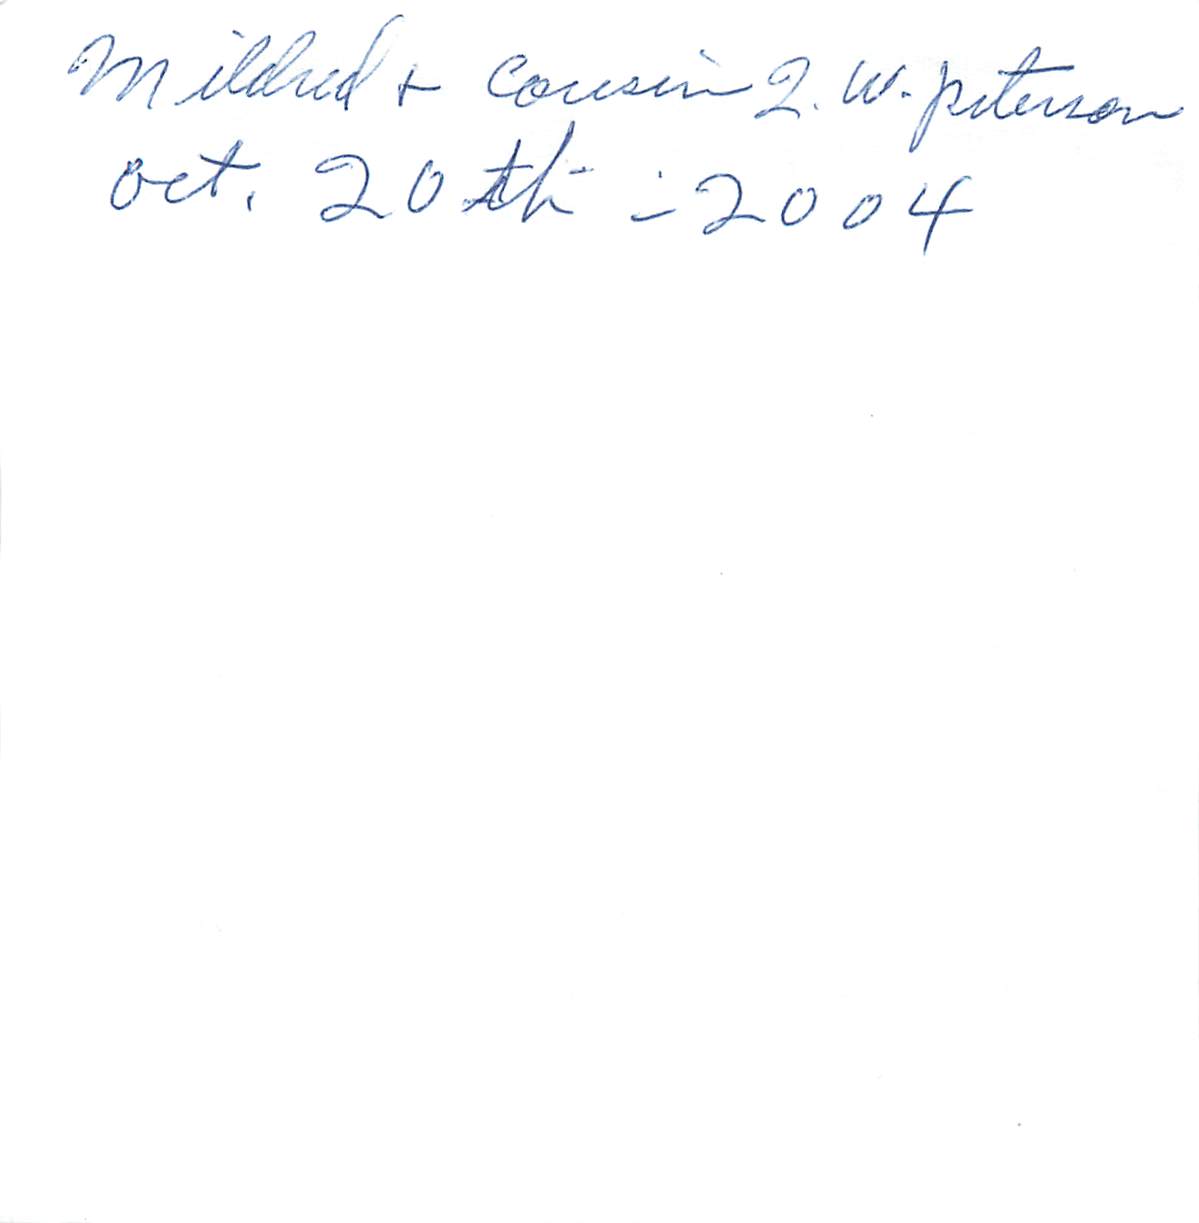 Mildred + Cousin Q. W. peterson
Oct. 20th - 2004